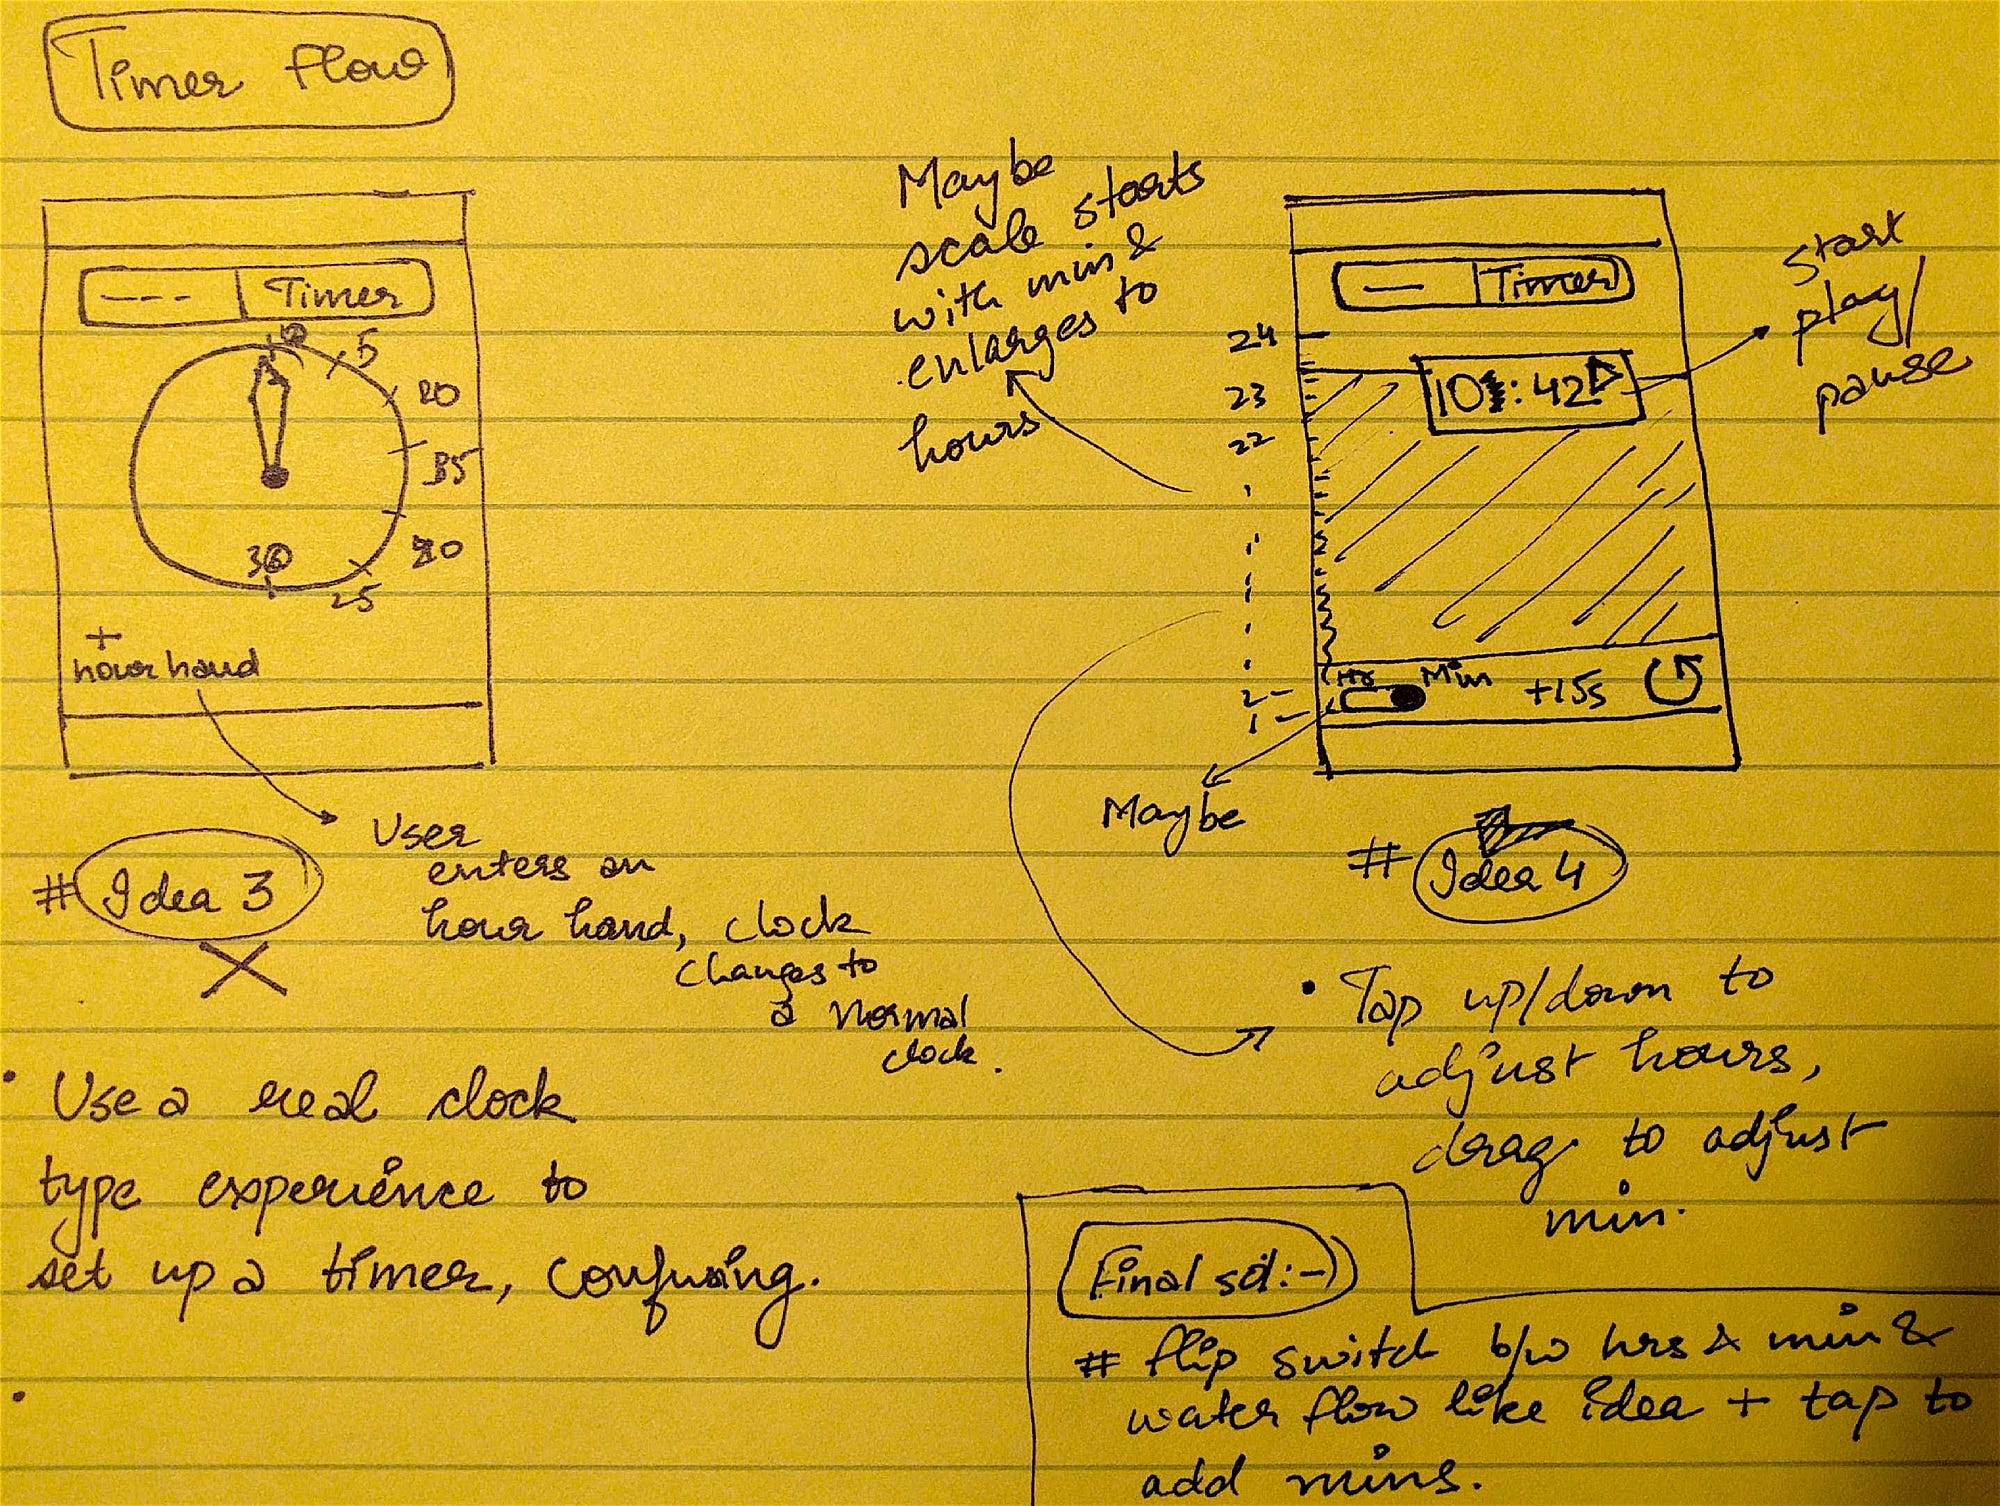 Timer Flow
--- Timer
5
10
15
20
25
30
+
hour hand
User
enters an
hour hand, clock
changes to
a normal
clock.
# Idea 3
X
• Use a real clock
type experience to
set up a timer, confusing.
•
Maybe
scale starts
with min &
enlarges to
hours
— Timer
24
23
22
2
1
10:42
start
play/
pause
Hr Min +15s
Maybe
# Idea 4
• Tap up/down to
adjust hours,
drag to adjust
min.
Final sol:-)
# flip switch b/w hrs & min &
water flow like idea + tap to
add mins.